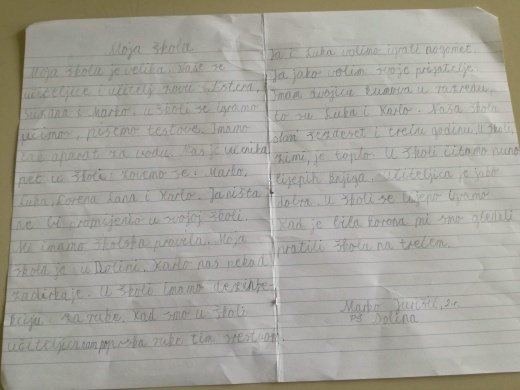 Moja škola
Moja škola je velika. Naše se
učiteljice i učitelj zovu: Estera,
Suzana i Marko. U školi se igramo
učimo, pišemo testove. Imamo
čak aparat za vodu. Nas je učenika
pet u školi: zovemo se: Marko,
Luka, Lorena Lana i Karlo. Ja ništa
ne bi promijenko u svojoj školi.
Mi imamo školska pravila. Moja
škola je u Dolini. Karlo nas nekad
zadirkaje. U školi imamo
za ruke. Kad smo u školi
učiteljica nam ruke tim srestvom.
Ja i Luka volimo igrati nogomet.
Ja jako volim svoje prijatelje.
Imam dvojicu kumova u razredu,
to su Luka i Karlo. Naša škola
ima šezdeset i treću godinu. U školi,
zimi, je toplo. U školi čitamo puno
lijepih knjiga. Učiteljica je jako
dobra. U školi se lijepo igramo.
Kad je bila korona mi smo gledali
pratili škola na trećem.
Marko
PŠ Dolina